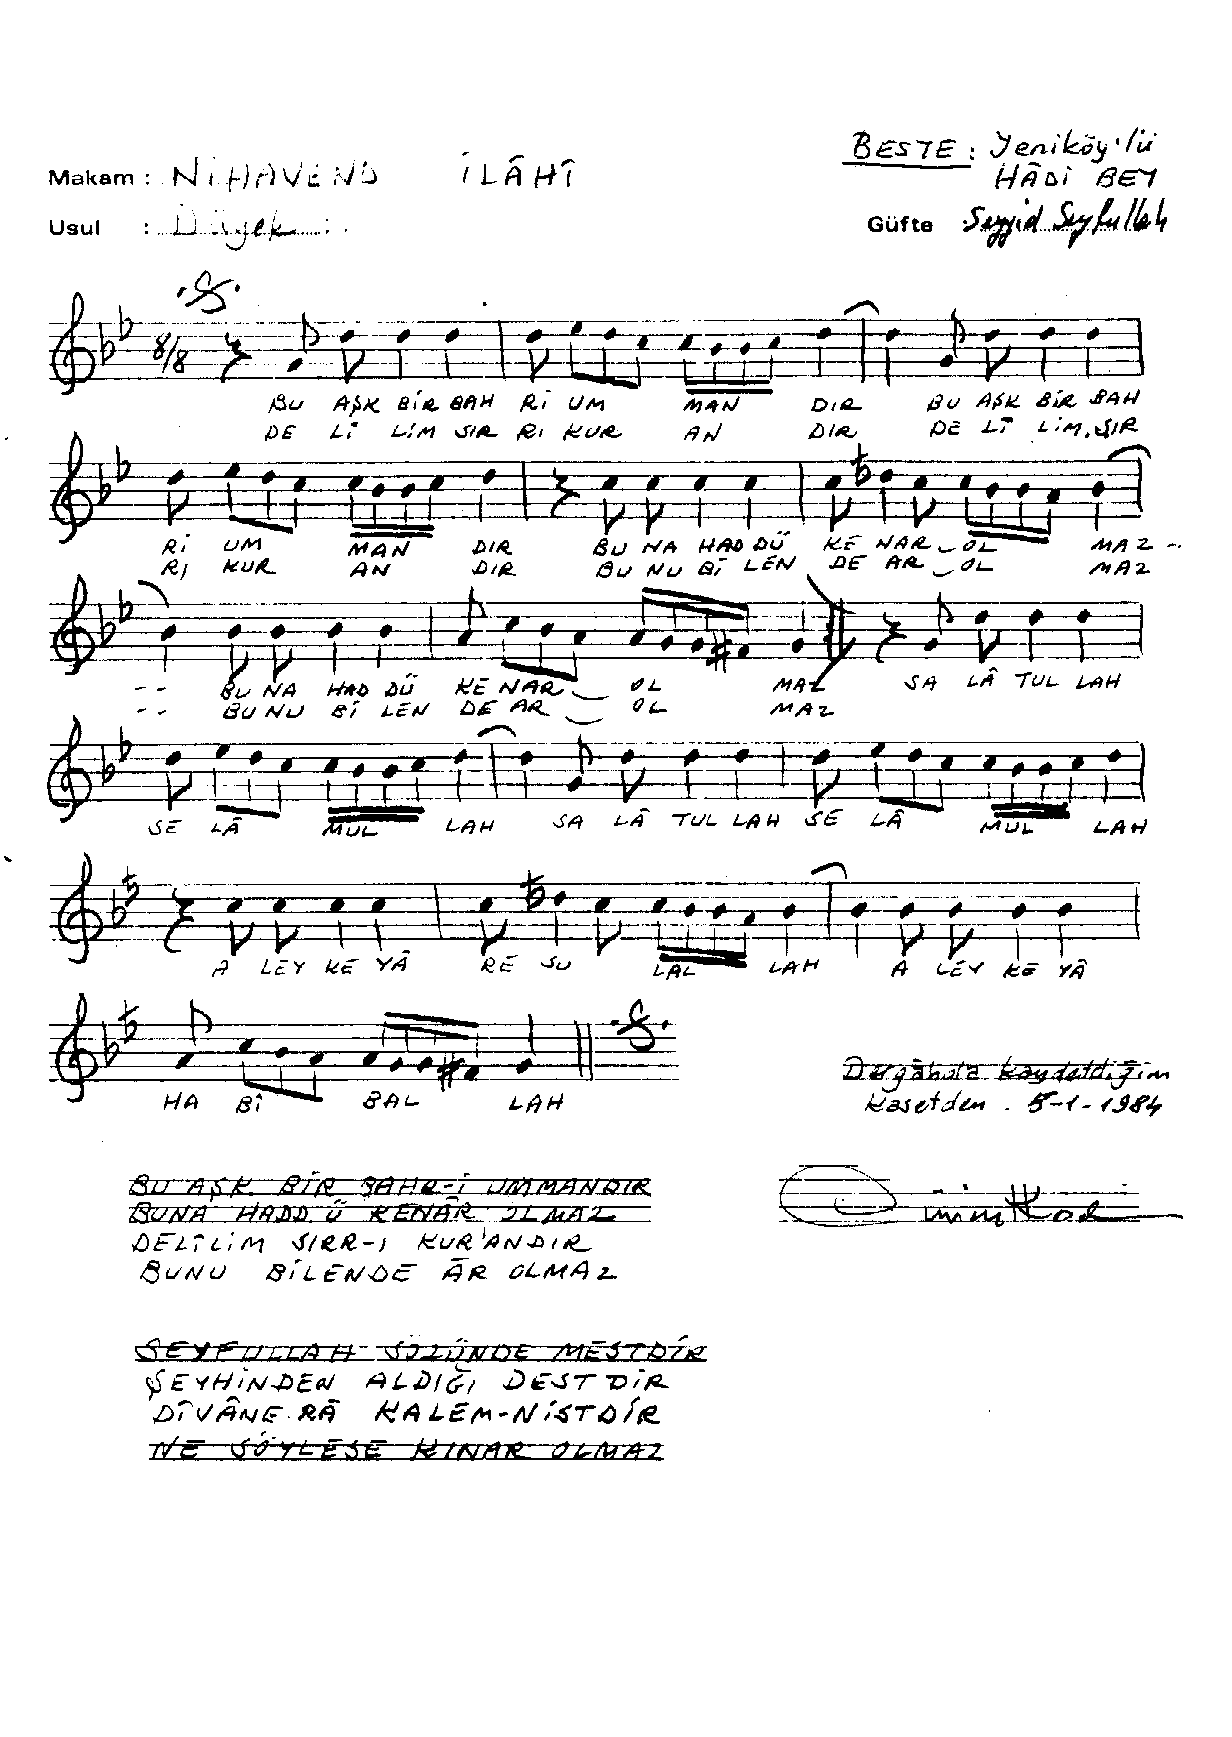 BESTE : Yeniköy'lü
Makam : NİHAVEND İLÂHÎ
HÂDİ BEY
Usul : Düyek
Güfte Seyyid Seyfullah
8/8
BU AŞK BİR BAH Rİ UM MAN DIR BU AŞK BİR BAH
DE LÎ LİM SIR RI KUR AN DIR DE LÎ LİM SIR
Rİ UM MAN DIR BU NA HAD DÜ KE NAR OL MAZ --
RI KUR AN DIR BU NU Bİ LEN DE AR OL MAZ
-- BU NA HAD DÜ KE NAR OL MAZ SA LÂ TUL LAH
-- BU NU Bİ LEN DE AR OL MAZ
SE LÂ MUL LAH SA LÂ TUL LAH SE LÂ MUL LAH
A LEY KE YÂ RE SU LAL LAH A LEY KE YÂ
HA BÎ BAL LAH
Dergâhda kaydetdiğim
kasetden . 5-1-1984
BU AŞK BİR BAHR-İ UMMANDIR
BUNA HADD Ü KENÂR OLMAZ
DELÎLİM SIRR-I KUR'ANDIR
BUNU BİLENDE ÂR OLMAZ
SEYFULLAH SÖZÜNDE MESTDİR
ŞEYHİNDEN ALDIĞI DESTDİR
DÎVÂNE RÂ KALEM-NİSTDİR
NE SÖYLESE KINAR OLMAZ